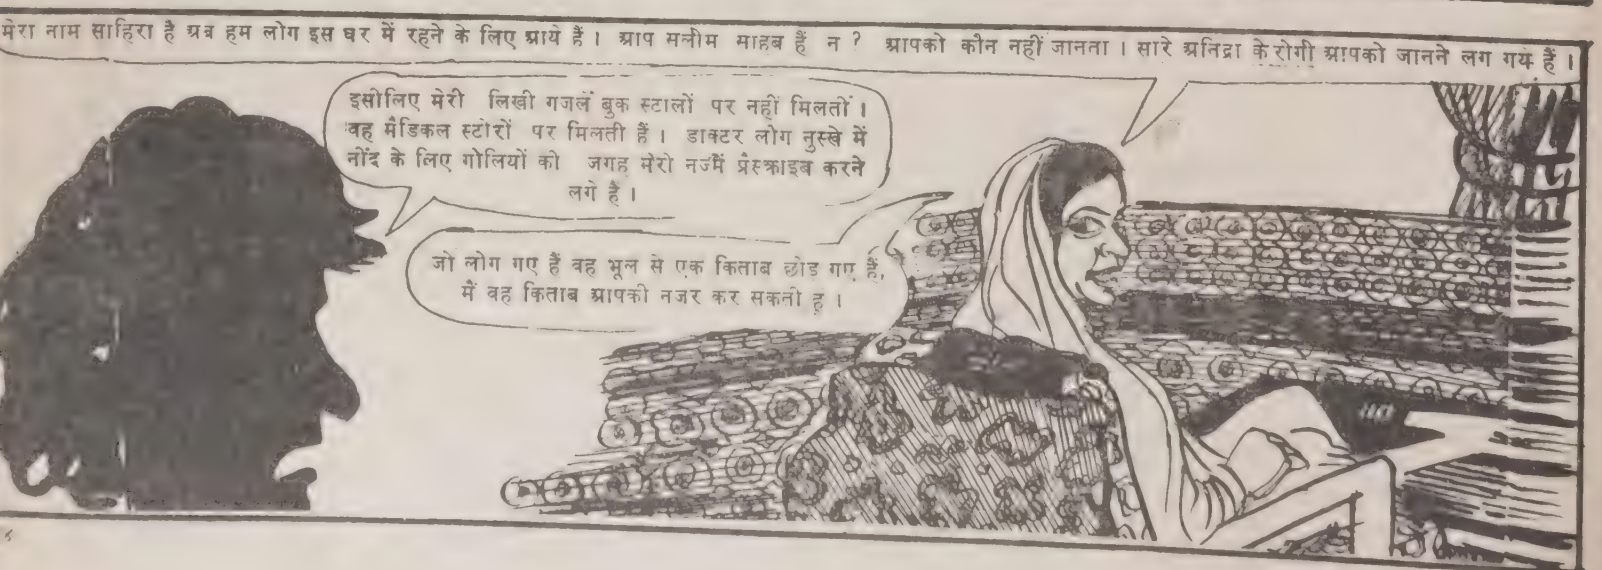 मेरा नाम साहिरा है अब हम लोग इस घर में रहने के लिए आये हैं। आप सलीम साहब हैं न ? आपको कौन नहीं जानता। सारे अनिद्रा के रोगी आपको जानने लग गये हैं।
इसीलिए मेरी लिखी गजलें बुक स्टालों पर नहीं मिलतीं।
वह मैडिकल स्टोरों पर मिलती हैं। डाक्टर लोग नुस्खे में
नींद के लिए गोलियों की जगह मेरी नज्में प्रैस्क्राइब करने
लगे हैं।
जो लोग गए हैं वह भूल से एक किताब छोड़ गए हैं,
मैं वह किताब आपकी नजर कर सकती हू।